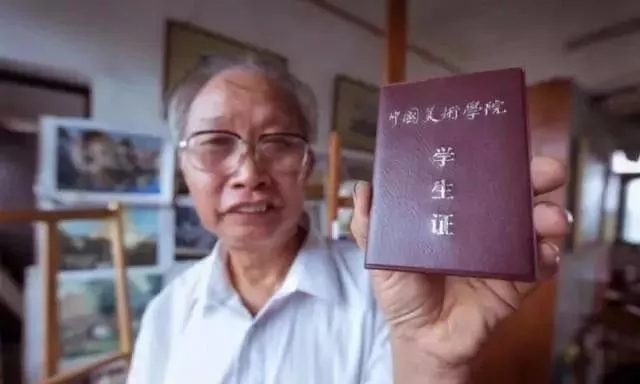 中国美術學院
学
生
证